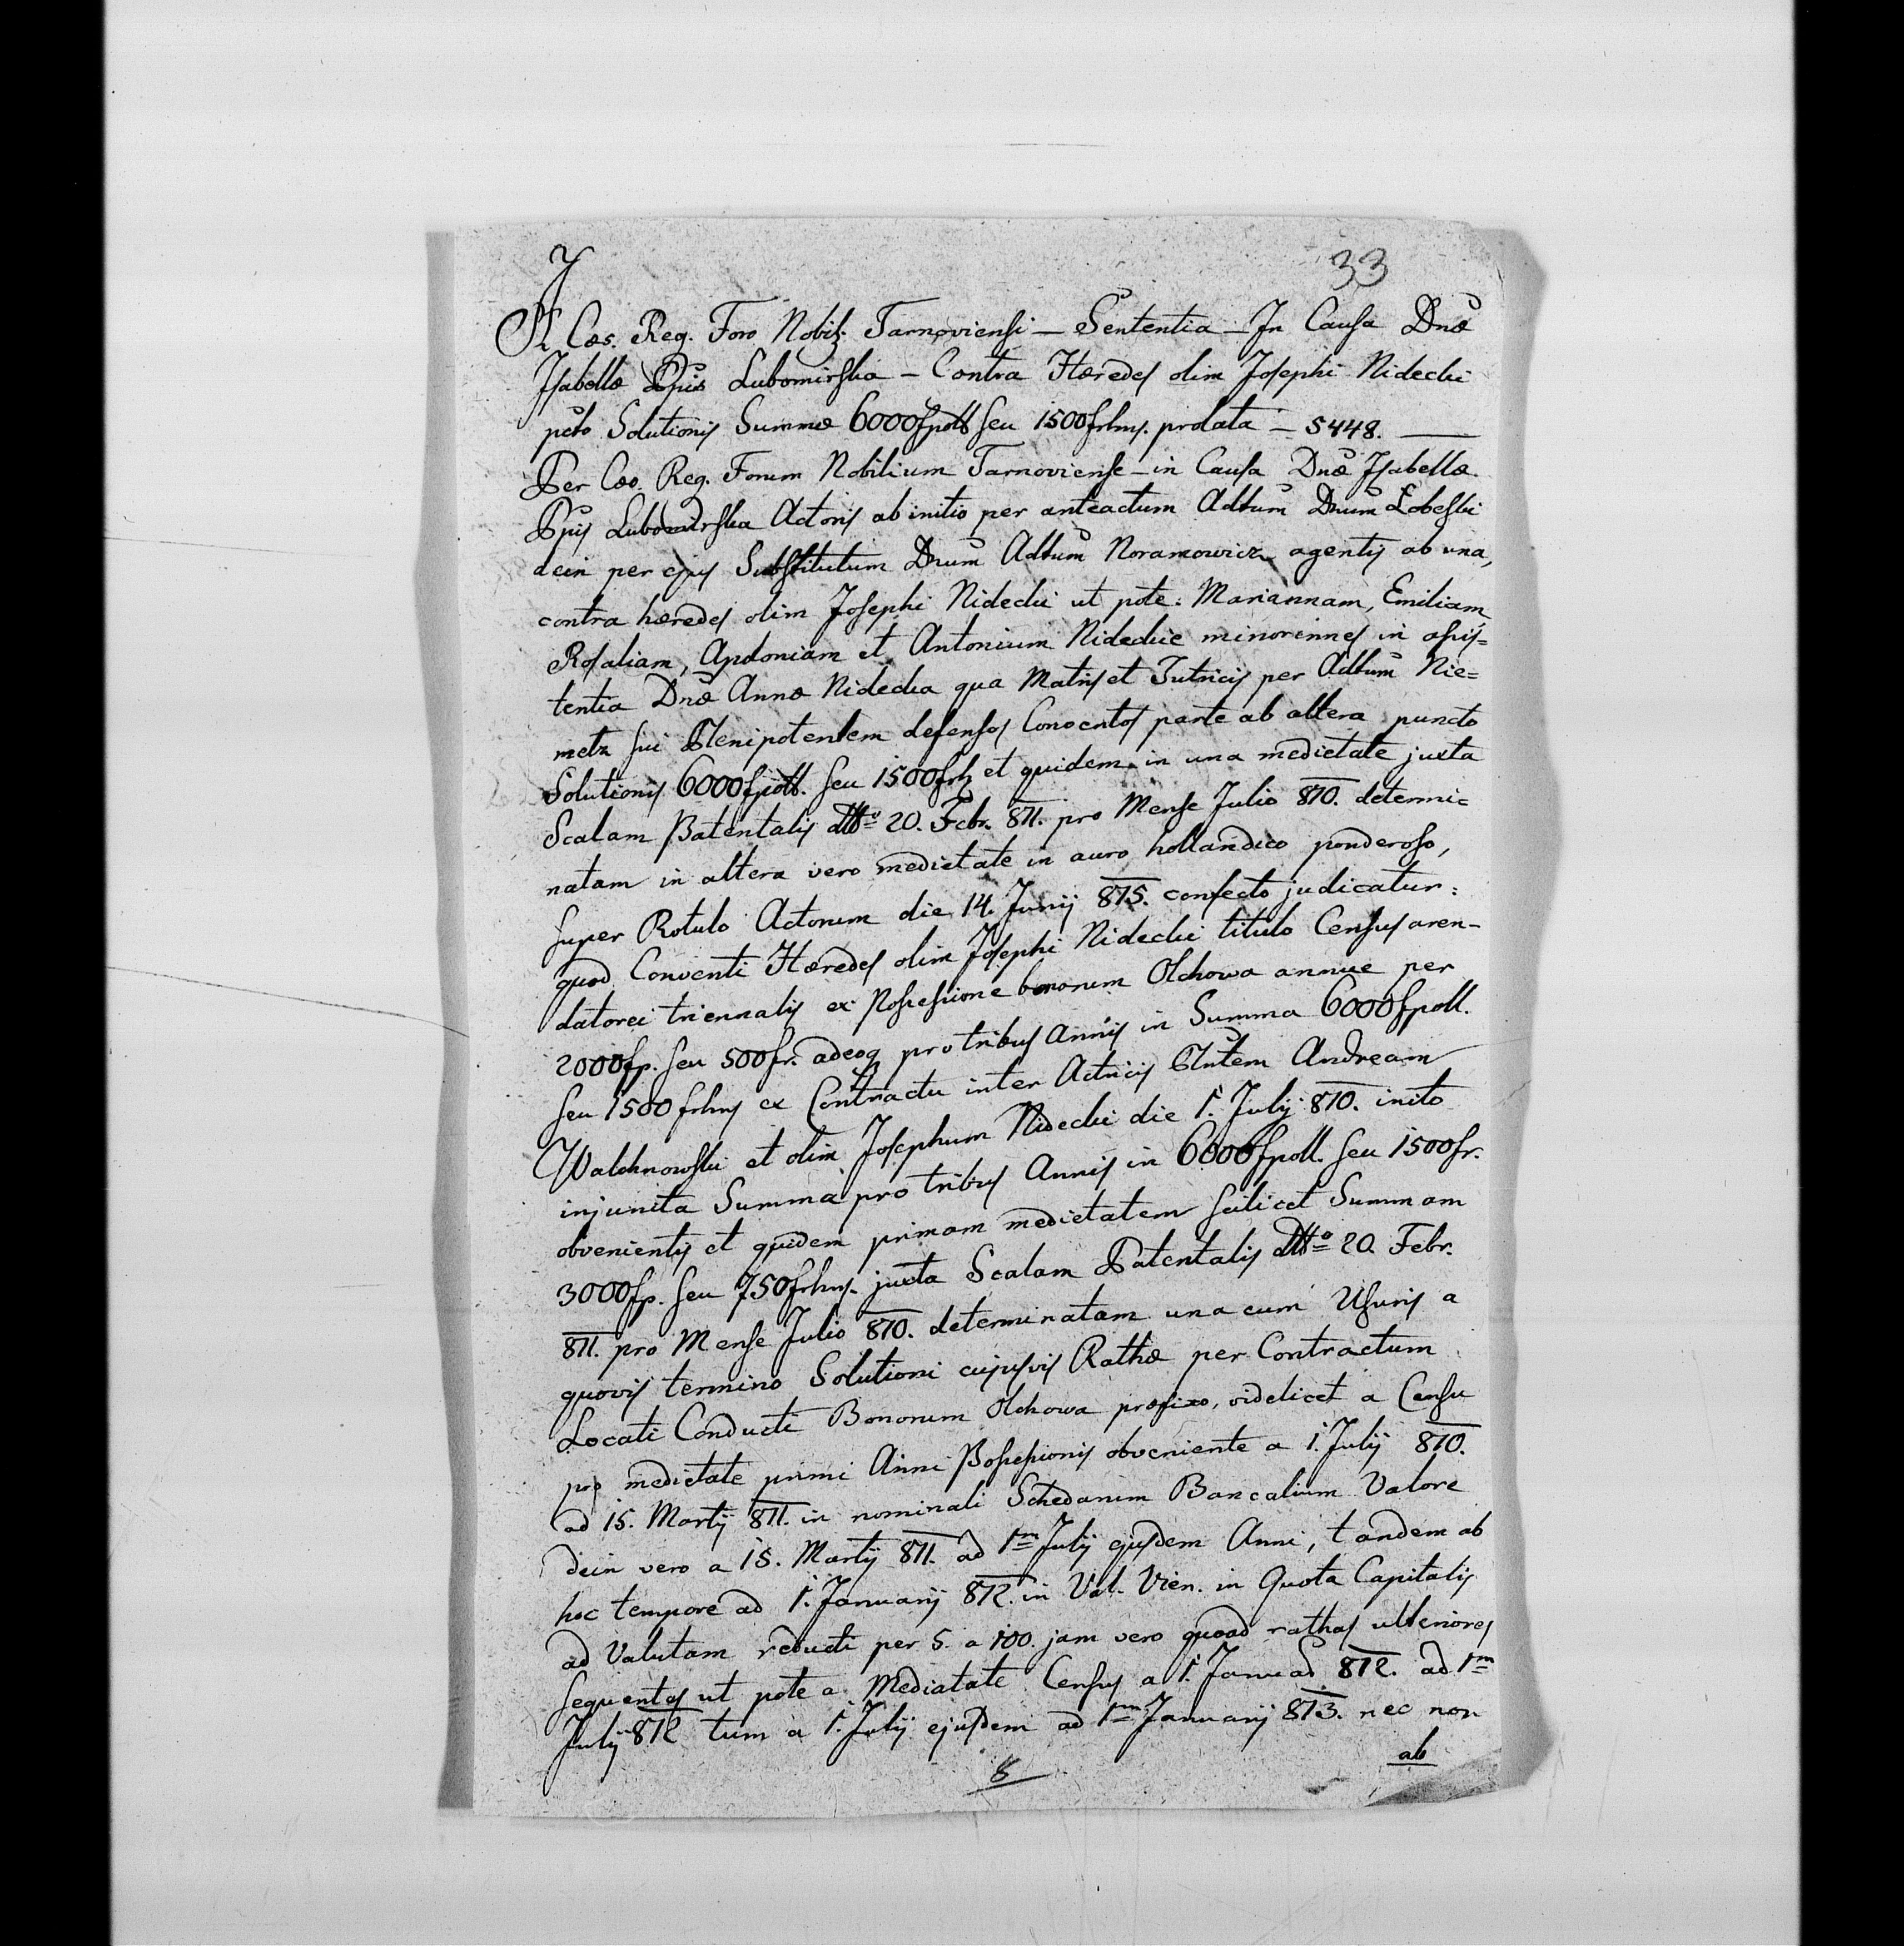 33
A Cæs. Reg. Foro Nobil. Tarnoviensi – Sententia – In Causa Dnæ
Isabellæ Ppis Lubomirska – Contra Hæredes olim Josephi Nidecki
pcto Solutionis Summæ 6000fpoll seu 1500frhns. prolata – 5448. —
Per Cæs. Reg. Forum Nobilium Tarnoviense – in Causa Dnæ Isabellæ
Ppis Lubomirska Actoris ab initio per anteactum Adtum Dnum Łobeski
dein per ejus Substitutum Dnum Adtum Noramowicz agentis ab una,
contra hæredes olim Josephi Nidecki ut pote: Mariannam, Emiliam,
Rosaliam, Apoloniam et Antonium Nideckie minorennes in assis=
tentia Dnæ Annæ Nidecka qua Matris et Tutricis per Adtum Nie=
metz sui Plenipotentem defensos Conventos parte ab altera puncto
Solutionis 6000fpoll. seu 1500frh et quidem in una medietate juxta
Scalam Patentalis ddto 20. Febr. 811. pro Mense Julio 810. determi=
natam in altera vero medietate in auro hollandico ponderoso,
super Rotulo Actorum die 14. Junij 815. confecto judicatur:
quod Conventi Hæredes olim Josephi Nidecki titulo Census aren-
datorei triennalis ex Possessione bonorum Olchowa annue per
2000fp. seu 500fr. adeoq pro tribus annis in Summa 6000fpoll.
seu 1500 frhns ex Contractu inter Actricis Plntem Andream
Walchnowski et olim Josephum Nidecki die 1. Julij 810. inito
injuncta Summa pro tribus Annis in 6000fpoll. seu 1500fr.
obvenientis et quidem primam medietatem scilicet Summam
3000fp. seu 750frhns. juxta Scalam Patentalis ddto 20. Febr.
811. pro Mense Julio 810. determinatam una cum Usuris a
quovis termino Solutioni cujusvis Rathæ per Contractum
Locati Conducti Bonorum Olchowa præfixo, videlicet a Censu
pro medietate primi Anni Possessionis obveniente a 1. Julij 810.
ad 15. Martij 811. in nominali Schedarum Bancalium Valore
dein vero a 15. Martij 811. ad 1m Julij ejusdem Anni, tandem ab
hoc tempore ad 1. Januarij 812. in Val. Vien. in Quota Capitalis
ad Valutam reducti per 5. a 100. jam vero quoad rathas ulteriores
sequentes ut pote a Mediatate Census a 1. Januar 812. ad 1m
Julij 812 tum a 1. Julij ejusdem ad 1m Januarij 813. nec non
ab
8